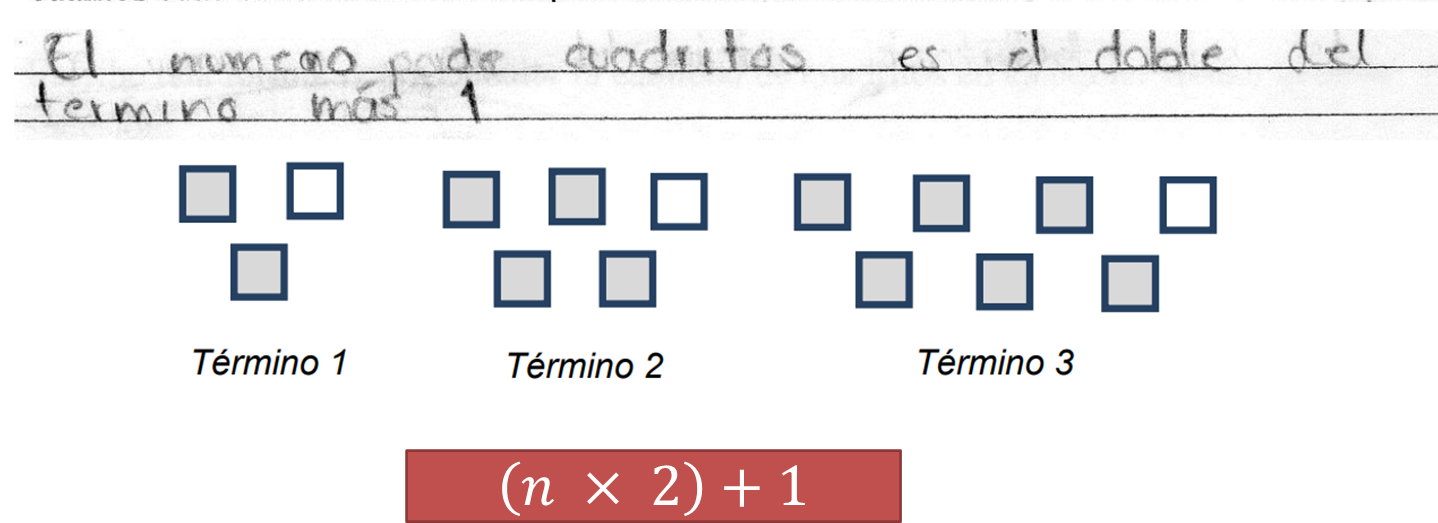 El numero de cuadritos es el doble del
termino más 1
Término 1 Término 2 Término 3
(n × 2) + 1